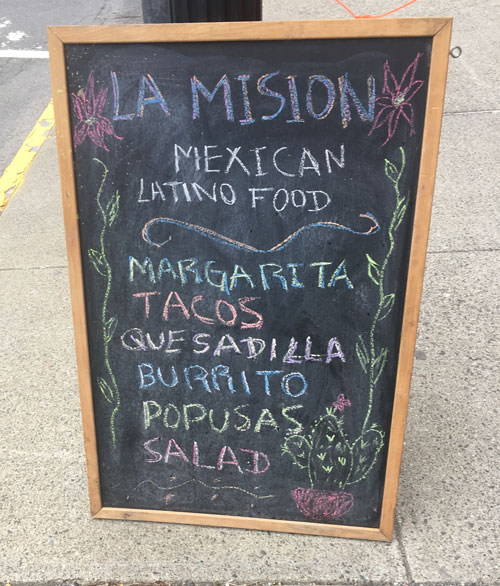 LA MISION
MEXICAN
LATINO FOOD
MARGARITA
TACOS
QUESADILLA
BURRITO
POPUSAS
SALAD